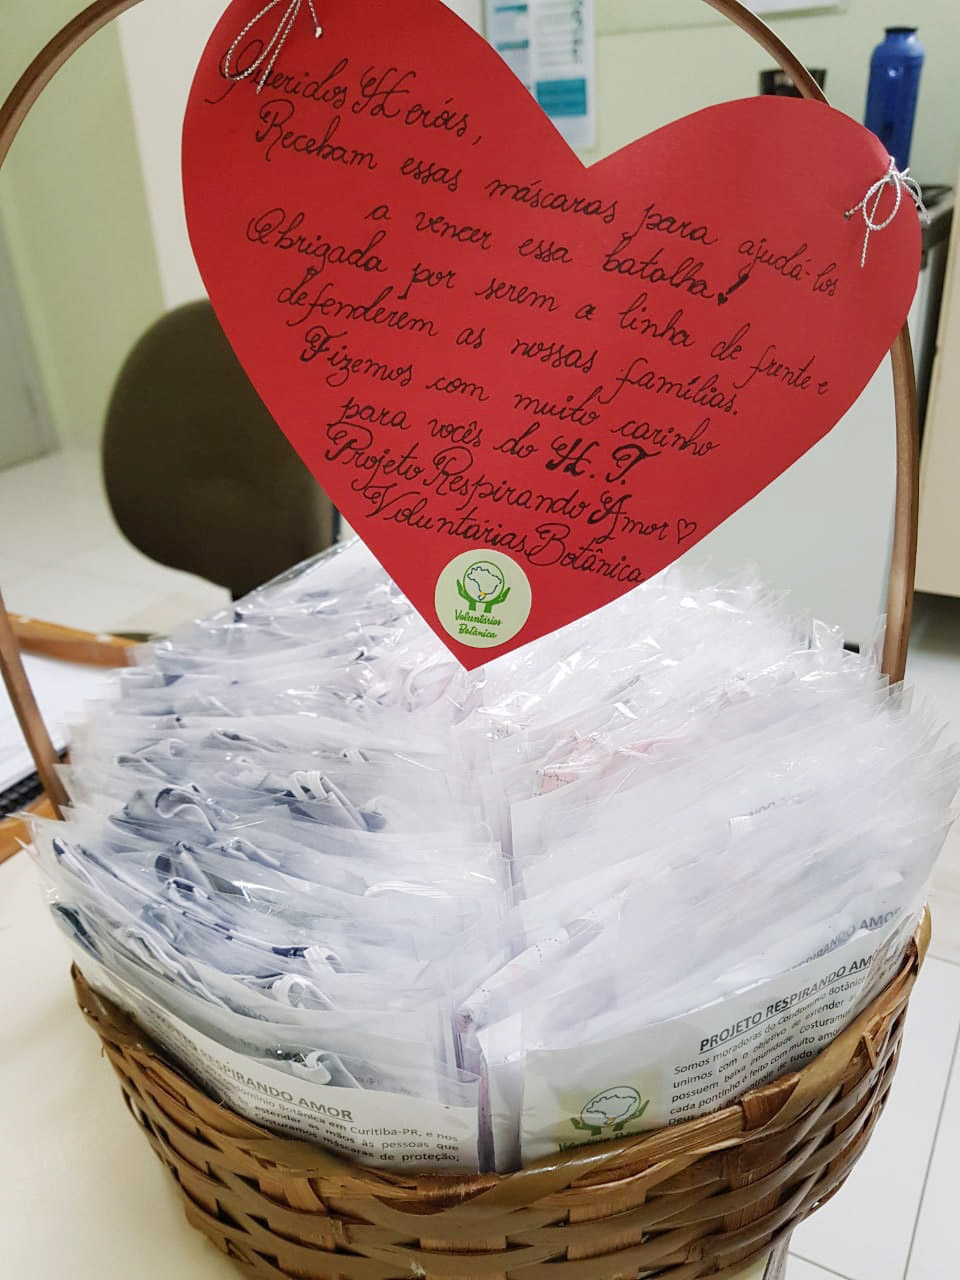 Queridos Heróis,
Recebam essas máscaras para ajudá-los
a vencer essa batalha!
Obrigada por serem a linha de frente e
defenderem as nossas famílias.
Fizemos com muito carinho
para vocês do H. T.
Projeto Respirando Amor
Voluntárias Botânica
Voluntárias
Botânica
RESPIRANDO AMOR
PROJETO RESPIRANDO
Somos moradoras do Condomínio Botânica
unimos com o objetivo de estender
possuem baixa imunidade. Costuramos
cada pontinho é feito com muito amor
controle de tudo
PROJETO RESPIRANDO AMOR
Condomínio Botânica em Curitiba-PR, e nos
de estender as mãos às pessoas que
Costuramos máscaras de proteção;